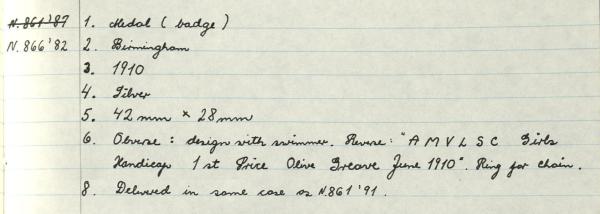 N.861'87 1. Medal ( badge )
N.866'82 2. Birmingham
3. 1910
4. Silver
5. 42 mm × 28 mm
6. Obverse : design with swimmer. Reverse : "A M V L S C Girls
Handicap 1 st Price Olive Greave June 1910". Ring for chain.
8. Delivered in same case as N.861'91.